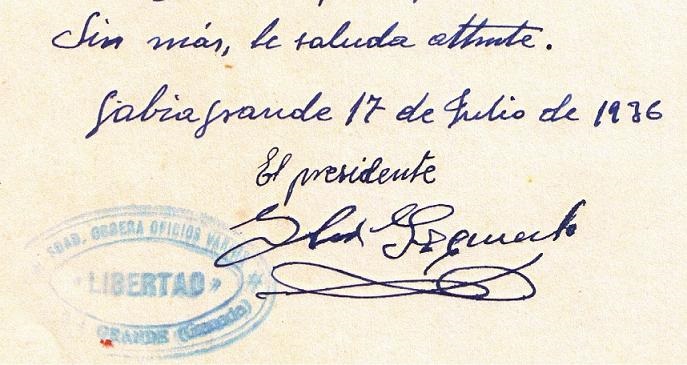 Sin más, le saluda attmte.
Gabia grande 17 de Julio de 1936
El presidente
SDAD. OBRERA OFICIOS VARIOS
"LIBERTAD"
GRANDE (Granada)